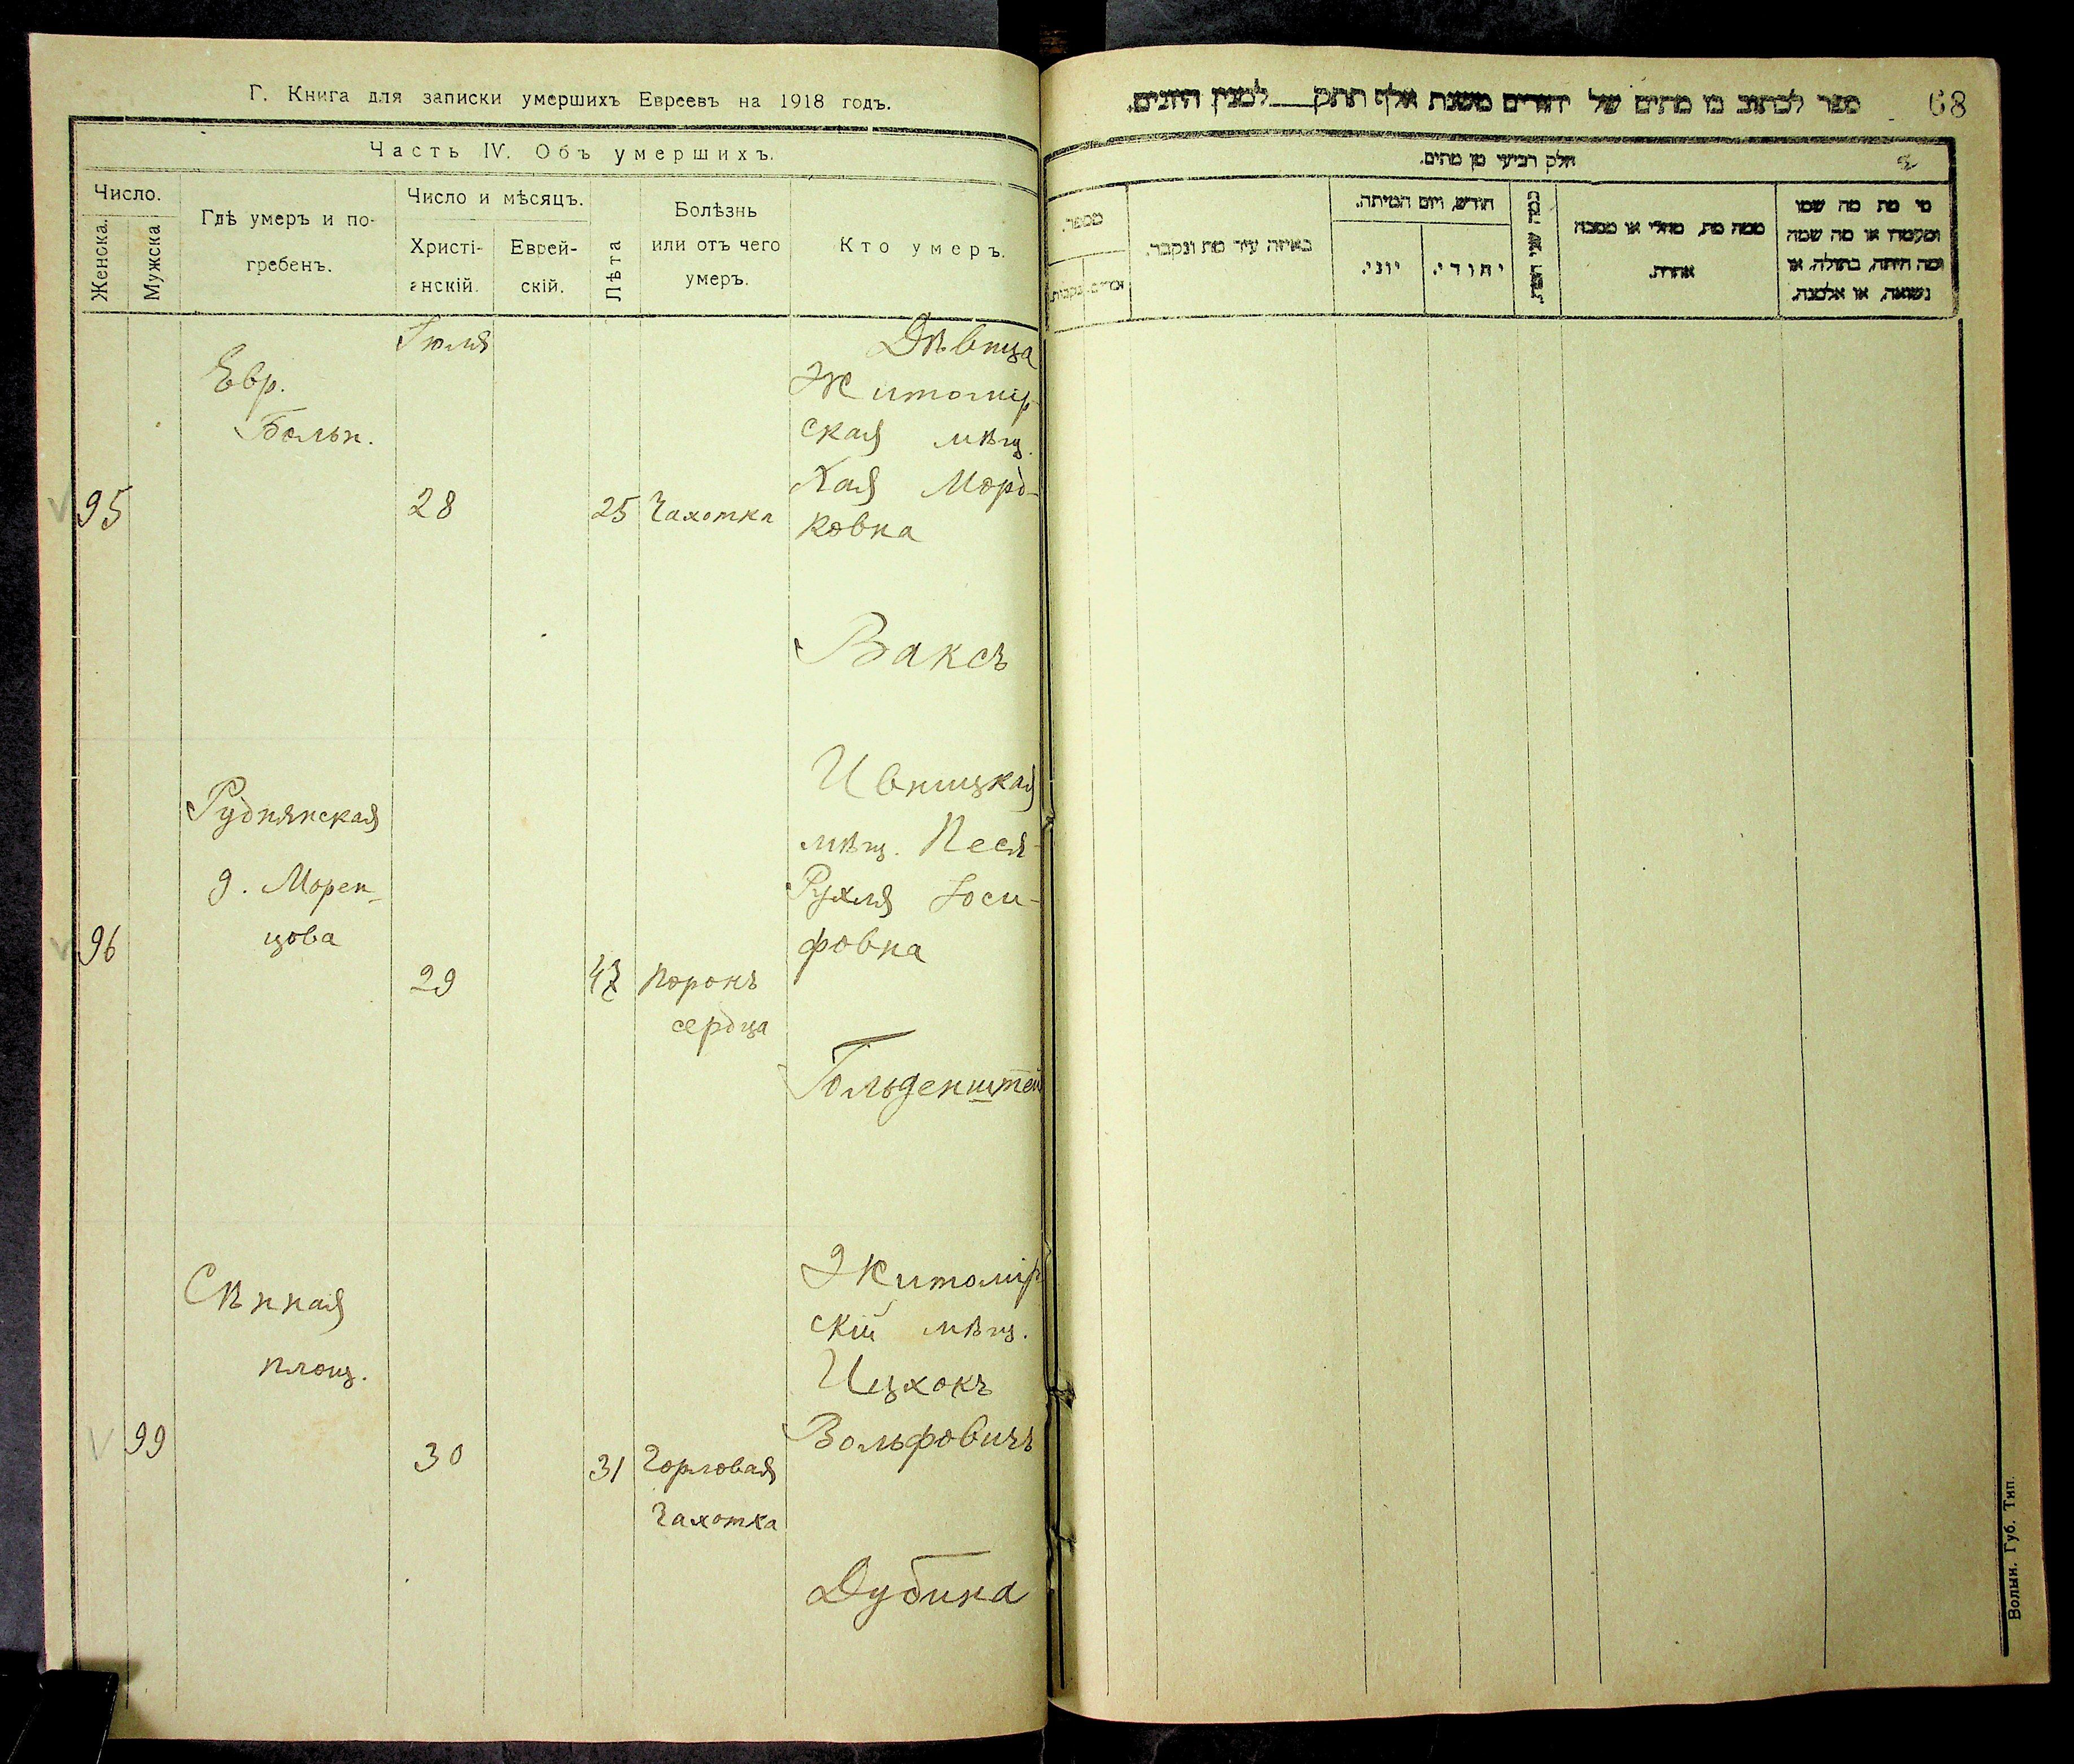 Г. Книга для записки умершихъ Евреевъ на 1918 годъ.
Часть IV. Объ умершихъ.
Число.
Женска.
Мужска
Гдѣ умеръ и по-
гребенъ.
Число и мѣсяцъ.
Христі-
анскій.
Еврей-
скій.
Лѣта
Болѣзнь
или отъ чего
умеръ.
Кто умеръ.
Іюля
95
Евр.
Больн.
28
25
Чахотка
Дѣвица
Житомір-
ская мѣщ.
Хая Морд-
ковна
Ваксъ
96
Руднянская
д. Морен-
цова
29
47
Порокъ
сердца
Ивницкая
мѣщ. Песя-
Рухля Іоси-
фовна
Гольденштей
99
Сѣнная
площ.
30
31
Горловая
Чахотка
Житомір
скій мѣщ.
Ицхокъ
Вольфовичъ
Дубина
ספר לכתוב בו מתים של יהודים משנת אלף תתק לסנין היונים.
68
חלק רביעי מן מתים.
מספר.
זכרים.
נקבות.
באיזה עיר מת ונקבר.
חודש, ויום המיתה.
יוני.
יהודי.
כמה שני
ממה מת, מחלי או מסבה
אחרת.
מי מת מה שמו
ומעמדו או מה שמה
ומה היתה, בתולה, או
נשואה, או אלמנה.
Волын. Губ. Тип.